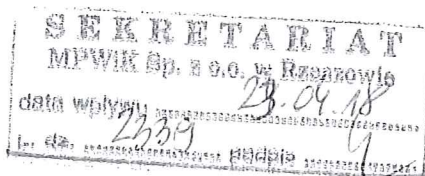 SEKRETARIAT
MPWiK Sp. z o.o. w Rzeszowie
data wpływu 23.04.18
L. dz. 2339 podpis